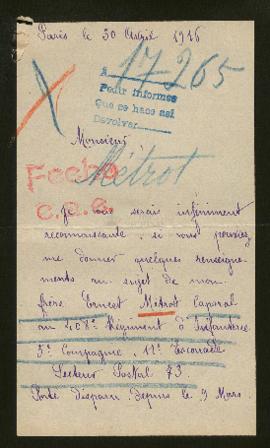 Paris le 30 Avril 1916
A 17-265
Pedir informes
Que se hace asi
Devolver
Monsieur
Métrot
Fecha
c.e.e.
Je vous serais infiniment
reconnaissante, si vous pouviez
me donner quelques renseigne-
ments au sujet de mon
frère Ernest Métrot Caporal
au 408e Régiment d'Infanterie
3e Compagnie, 11e Escouade
Secteur Postal 73.
Porté disparu depuis le 9 Mars.